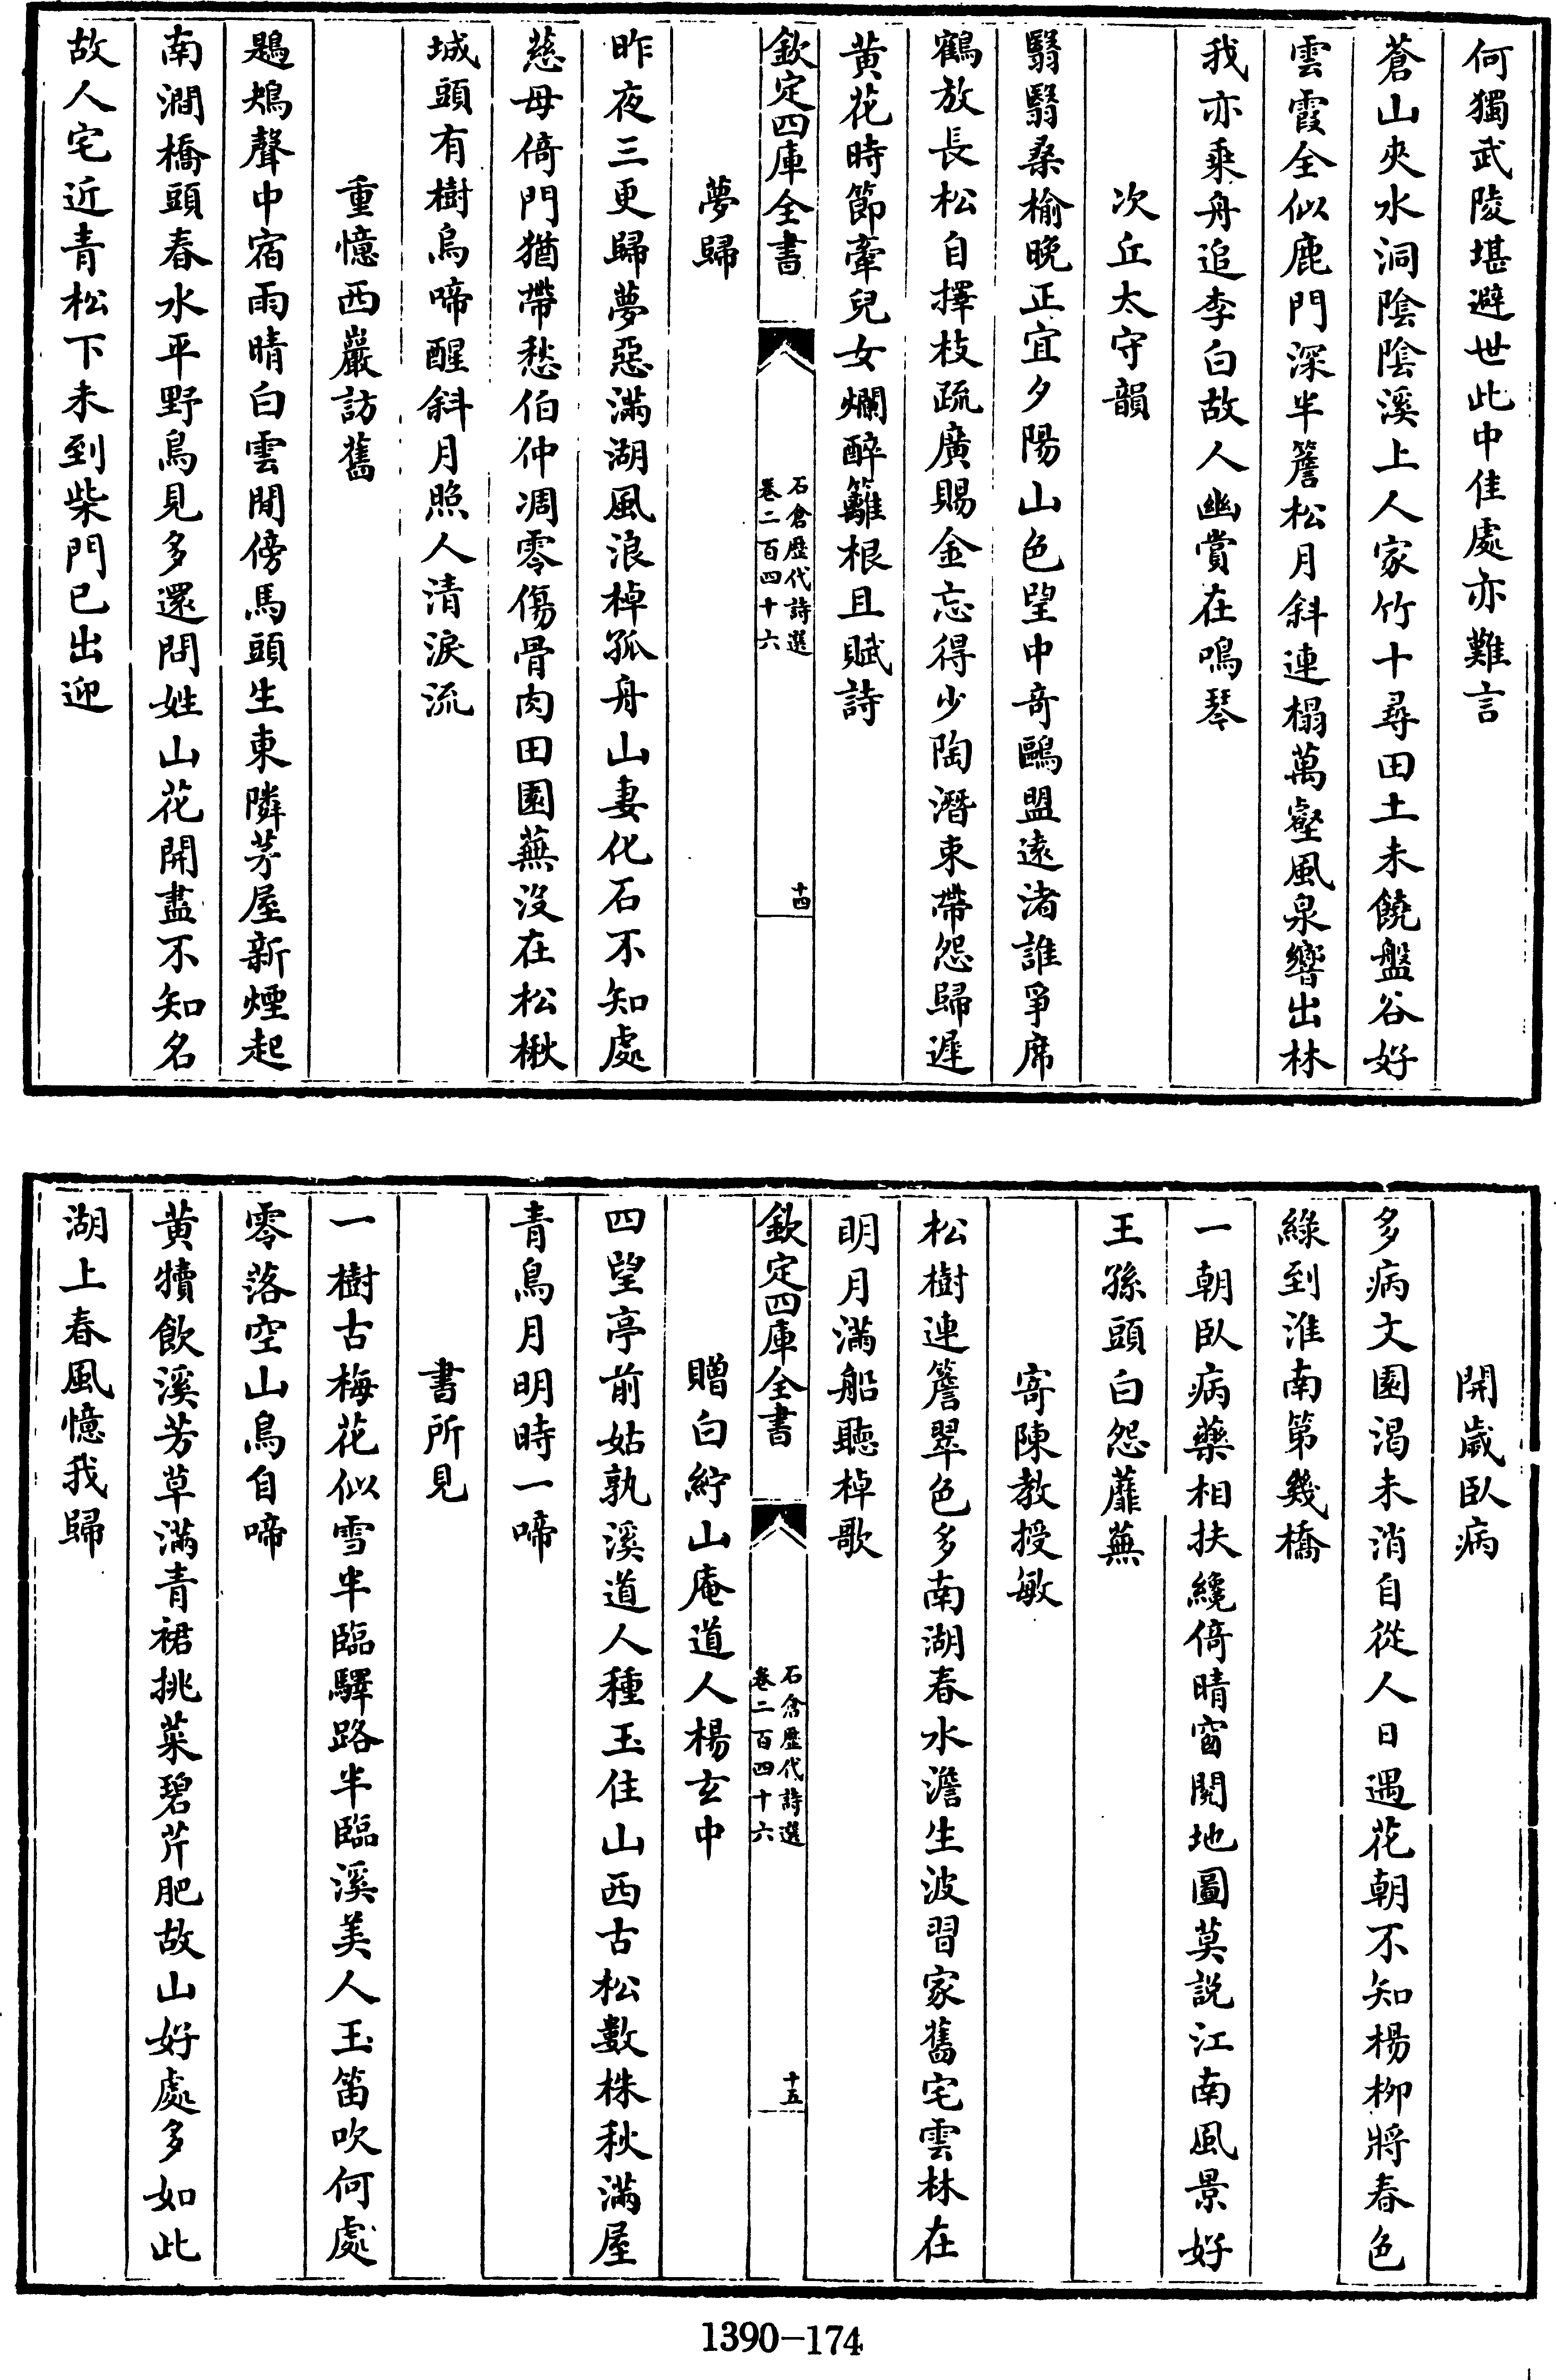 何獨武陵堪避世此中佳處亦難言
蒼山夾水洞陰陰溪上人家竹十尋田土未饒盤谷好
雲霞全似鹿門深半簷松月斜連榻萬壑風泉響出林
我亦乘舟追李白故人幽賞在鳴琴
次丘太守韻
翳翳桑榆晚正宜夕陽山色望中奇鷗盟遠渚誰爭席
鶴放長松自擇枝疏廣賜金忘得少陶潛束帶怨歸遲
黄花時節牽兒女爛醉籬根且賦詩
欽定四庫全書
石倉歷代詩選
卷二百四十六
十四
夢歸
昨夜三更歸夢惡滿湖風浪棹孤舟山妻化石不知處
慈母倚門猶帶愁伯仲凋零傷骨肉田園蕪没在松楸
城頭有樹烏啼醒斜月照人清淚流
重憶西巖訪舊
鶗鴂聲中宿雨晴白雲閒傍馬頭生東隣茅屋新煙起
南澗橋頭春水平野鳥見多還問姓山花開盡不知名
故人宅近青松下未到柴門已出迎
開歲臥病
多病文園渴未消自從人日遇花朝不知楊柳將春色
綠到淮南第幾橋
一朝臥病藥相扶纔倚晴窗閱地圖莫説江南風景好
王孫頭白怨蘼蕪
寄陳教授敏
松樹連簷翠色多南湖春水澹生波習家舊宅雲林在
明月滿船聽棹歌
欽定四庫全書
石倉歷代詩選
卷二百四十六
十五
贈白紵山庵道人楊玄中
四望亭前姑孰溪道人種玉住山西古松數株秋滿屋
青鳥月明時一啼
書所見
一樹古梅花似雪半臨驛路半臨溪美人玉笛吹何處
零落空山鳥自啼
黄犢飲溪芳草滿青裙挑菜碧芹肥故山好處多如此
湖上春風憶我歸
1390-174